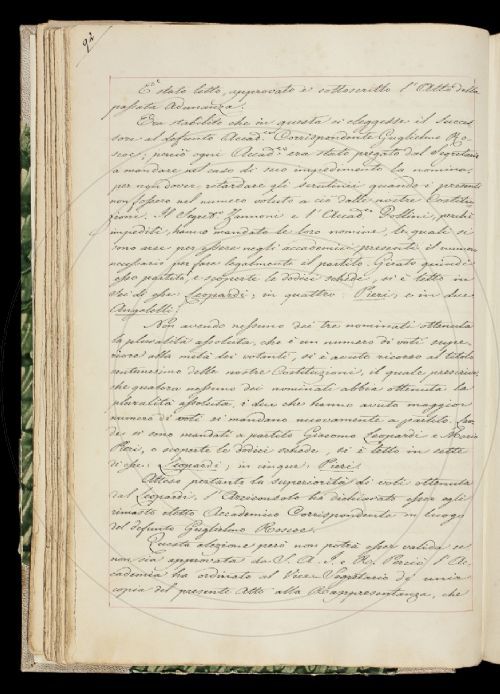 92
È stato letto, approvato e sottoscritto l'Atto della
passata Adunanza.
Era stabilito che in questa si eleggesse il Succes-
sore al defunto Accad.co Corrispondente Guglielmo Ro-
scoe; perciò ogni Accad.co era stato pregato dal Segretario
a mandare nel caso di suo impedimento la nomina,
per non dover ritardare gli scrutinii quando i presenti
non fossero nel numero voluto a ciò dalle nostre Costitu-
zioni. Il Segret.o Zannoni e l'Accad.co Pollini, perchè
impediti, hanno mandato le loro nomine, le quali si
sono aver per essere negli accademici presenti il numero
necessario per fare legalmente il partito. Girato quindi
esso partito, e scoperte le dodici schede, si è letto in
sei di esse Leopardi; in quattro Pieri; e in due
Angelotti.
Non avendo nessuno dei tre nominati ottenuta
la pluralità assoluta, che è un numero di voti supe-
riore alla metà dei votanti, si è avuto ricorso al titolo
sentinesimo delle nostre Costituzioni, il quale prescrive,
che qualora nessuno dei nominati abbia ottenuta la
pluralità assoluta, i due che hanno avuto maggior
numero di voti si mandano nuovamente a partito. On-
de si sono mandati a partito Giacomo Leopardi e Mario
Pieri, e scoperte le dodici schede si è letto in sette
di esse, Leopardi; in cinque, Pieri.
Attesa pertanto la superiorità di voti ottenuta
dal Leopardi, l'Arciconsolo ha dichiarato essere egli
rimasto eletto Accademico Corrispondente in luogo
del defunto Guglielmo Roscoe.
Questa elezione però non potrà esser valida se
non sia approvata da S. A. I. e R. Perciò l'Ac-
cademia ha ordinato al Vice-Segretario di unir
copia del presente Atto alla Rappresentanza, che